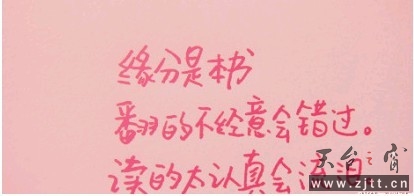 缘分是本书
翻的不经意会错过。
读的太认真会流泪
天台之窗
www.zjtt.cn